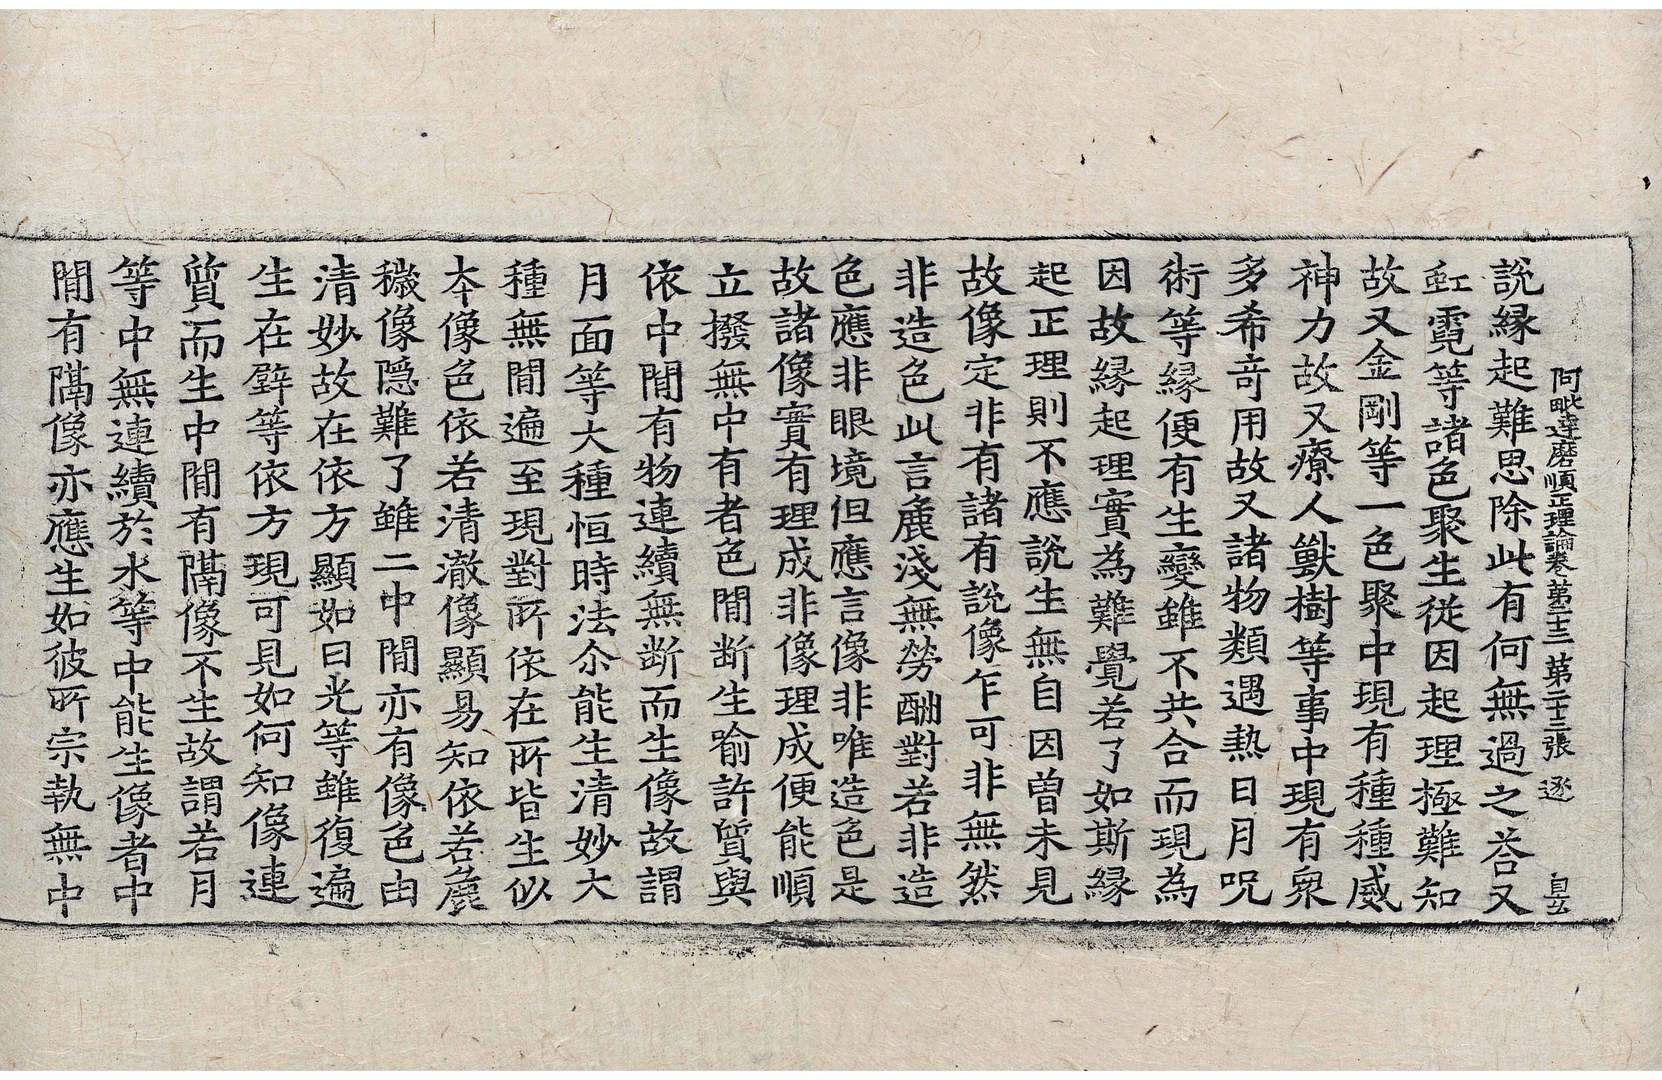 阿毗達磨順正理論卷第二十三 第二十三張 逐
說緣起難思除此有何無過之荅又
虹霓等諸色聚生從因起理極難知
故又金剛等一色聚中現有種種威
神力故又療人獸樹等事中現有衆
多希竒用故又諸物類遇熱日月呪
術等緣便有生變雖不共合而現為
因故緣起理實為難覺若了如斯緣
起正理則不應說生無自因曾未見
故像定非有諸有說像乍可非無然
非造色此言麁淺無勞酬對若非造
色應非眼境但應言像非唯造色是
故諸像實有理成非像理成便能順
立撥無中有者色閒断生喻許質與
依中閒有物連續無断而生像故謂
月面等大種恒時法尒能生清妙大
種無閒遍至現對所依在所皆生似
本像色依若清澈像顯易知依若麁
穢像隱難了雖二中閒亦有像色由
清妙故在依方顯如日光等雖復遍
生在壁等依方現可見如何知像連
質而生中閒有隔像不生故謂若月
等中無連續於水等中能生像者中
閒有隔像亦應生如彼所宗執無中